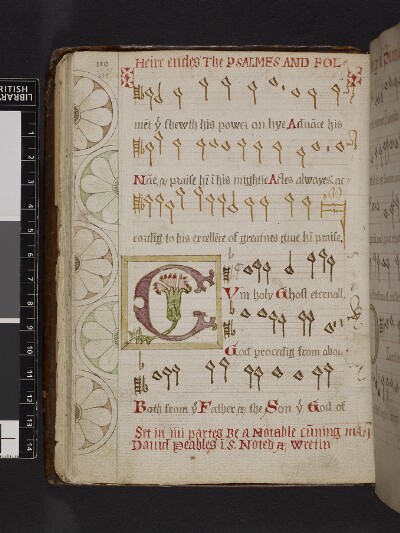 110
Heire endes The PSALMES AND FOL-
mēt ẏ shewth his power on hye Aduāce his
Nāe, & praise hī ī his mightie Actes alwayes. ac-
cordīg to his excellēce of greatnes giue hī praise.
Cvm holy Ghost eternall,
God procedīg from aboue
Both from ẏ Father & the Son ẏ God of
Set in iiii partes Be a Notable cūning mā
Dauid Peables I.S. Noted & Wretin
LIBRARY
1
2
3
4
5
6
7
8
9
10
11
12
13
14